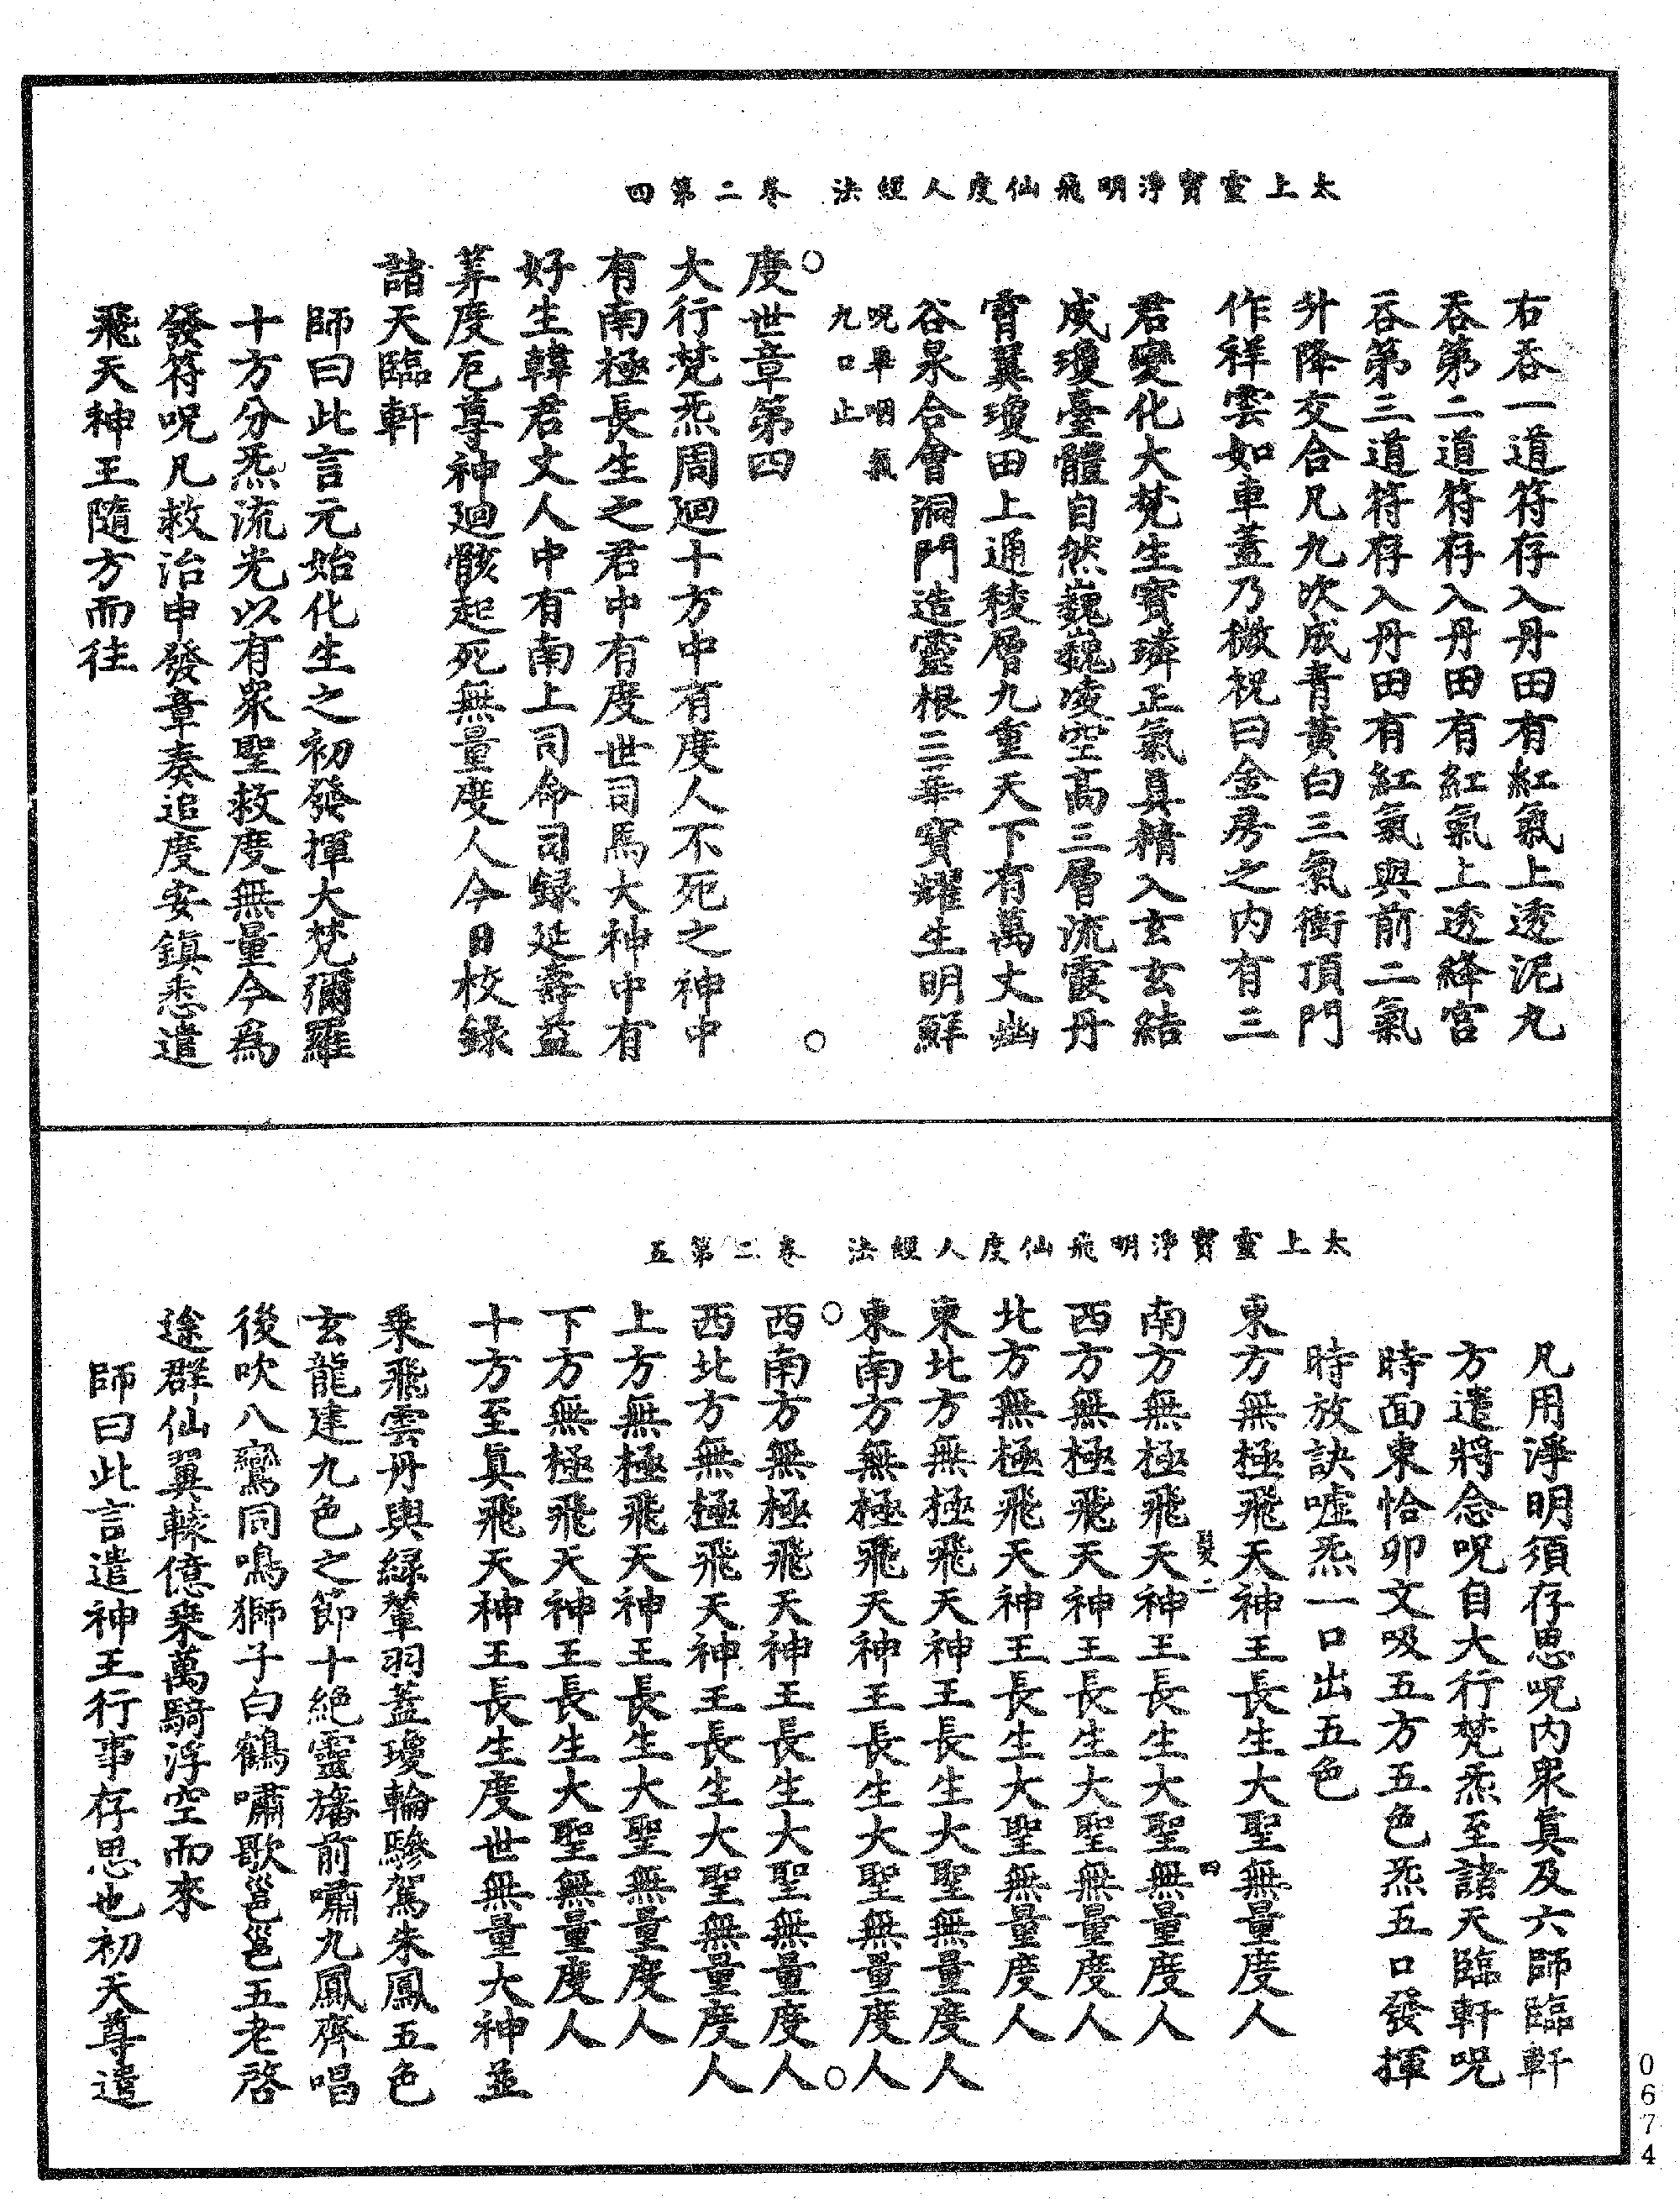 太上靈寶淨明飛仙度人經法　卷二第四
右吞一道符存入丹田有紅氣上透泥丸
吞第二道符存入丹田有紅氣上透絳宮
吞第三道符存入丹田有紅氣與前二氣
升降交合凡九次成青黃白三氣衝頂門
作祥雲如車蓋乃微祝曰金房之內有三
君變化大梵生寶璘正氣真精入玄玄結
成瓊臺體自然巍巍凌空高三層流霞丹
霄翼瓊田上通稜層九重天下有萬丈幽
谷泉合會洞門造靈根三華寶耀生明鮮
呪畢咽氣
九口止
度世章第四
大行梵炁周迴十方中有度人不死之神中
有南極長生之君中有度世司馬大神中有
好生韓君丈人中有南上司命司錄延壽益
筭度厄尊神迴骸起死無量度人今日校錄
諸天臨軒
師曰此言元始化生之初發揮大梵彌羅
十方分炁流光以有眾聖救度無量今為
發符呪凡救治申發章奏追度安鎮悉遣
飛天神王隨方而往
太上靈寶淨明飛仙度人經法　卷二第五
凡用淨明須存思呪內眾真及六師臨軒
方遣將念呪自大行梵炁至諸天臨軒呪
時面東恰卯文吸五方五色炁五口發揮
時放訣噓炁一口出五色
東方無極飛天神王長生大聖無量度人
二　四
南方無極飛天神王長生大聖無量度人
西方無極飛天神王長生大聖無量度人
北方無極飛天神王長生大聖無量度人
東北方無極飛天神王長生大聖無量度人
東南方無極飛天神王長生大聖無量度人
西南方無極飛天神王長生大聖無量度人
西北方無極飛天神王長生大聖無量度人
上方無極飛天神王長生大聖無量度人
下方無極飛天神王長生大聖無量度人
十方至真飛天神王長生度世無量大神並
乘飛雲丹輿綠輦羽蓋瓊輪驂駕朱鳳五色
玄龍建九色之節十絕靈旛前嘯九鳳齊唱
後吹八鸞同鳴獅子白鶴嘯歌邕邕五老啓
途群仙翼轅億乘萬騎浮空而來
師曰此言遣神王行事存思也初天尊遣
0674